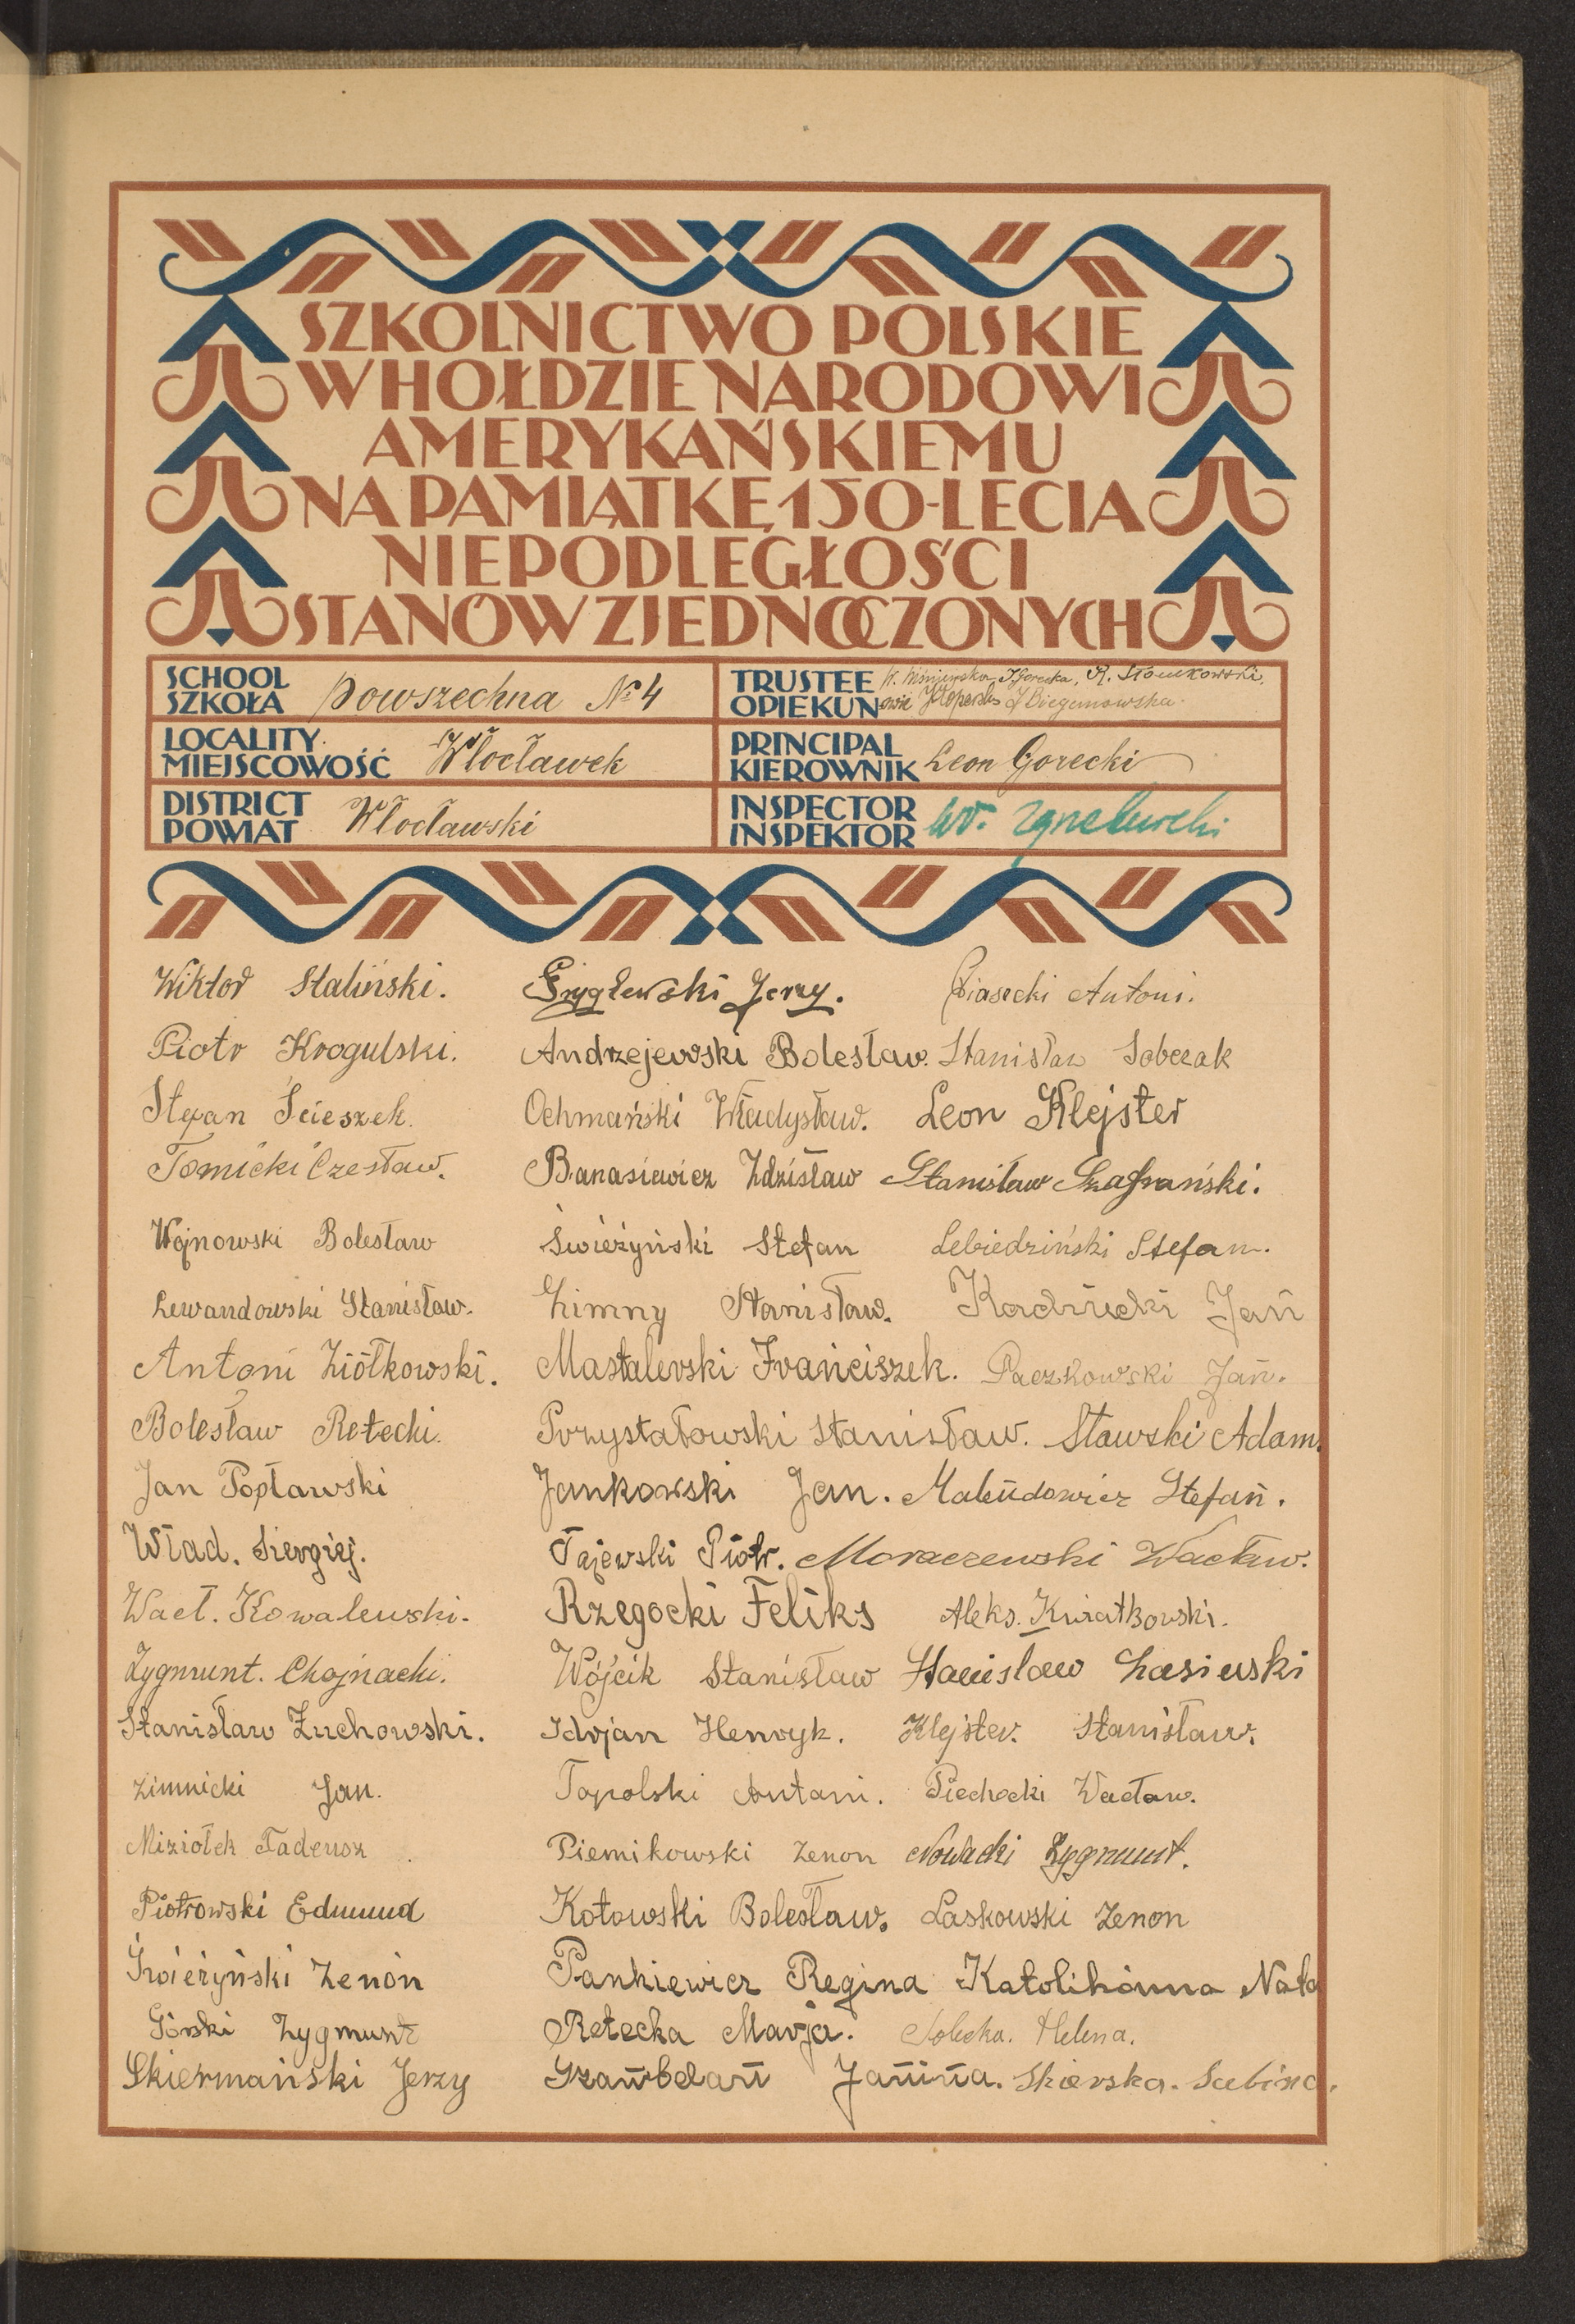 SZKOLNICTWO POLSKIE
W HOŁDZIE NARODOWI
AMERYKAŃSKIEMU
NA PAMIĄTKĘ 150-LECIA
NIEPODLEGŁOŚCI
STANÓW ZJEDNOCZONYCH
SCHOOL
SZKOŁA Powszechna № 4
TRUSTEE
OPIEKUN R. Słomkowski,
LOCALITY
MIEJSCOWOŚĆ Włocławek
PRINCIPAL
KIEROWNIK Leon Gorecki
DISTRICT
POWIAT Włocławski
INSPECTOR
INSPEKTOR
Wiktor Staliński. Jerzy. Piasecki Antoni.
Piotr Krogulski. Andrzejewski Bolesław. Stanisław Sobczak
Stefan Ścieszek. Ochmański Władysław. Leon Klejster
Tomicki Czesław. Banasiewicz Zdzisław Stanisław Szafrański.
Wojnowski Bolesław Świeżyński Stefan Lebiedziński Stefan.
Lewandowski Stanisław. Zimny Stanisław. Jan
Antoni Ziółkowski. Mastalerski Franciszek. Paczkowski Jan.
Bolesław Retecki. Przystałowski Stanisław. Sławski Adam.
Jan Popławski Jankowski Jan. Stefan.
Wład. Siergiej. Tajewski Piotr. Moraczewski Wacław.
Wacł. Kowalewski. Rzegocki Feliks Aleks. Kwiatkowski.
Zygmunt. Chojnacki. Wójcik Stanisław Stanisław Łasiewski
Stanisław Żuchowski. Idrjan Henryk. Klejster. Stanisław.
Zimnicki Jan. Topolski Antoni. Piechocki Wacław.
Miziołek Tadeusz Piernikowski Zenon Nowacki Zygmunt.
Piotrowski Edmund Kotowski Bolesław. Laskowski Zenon
Świeżyński Zenon Pankiewicz Regina Katolikówna Nata
Górski Zygmunt Retecka Marja. Solecka. Helena.
Skiermański Jerzy Szambelan Janina. Skierska. Sabina.